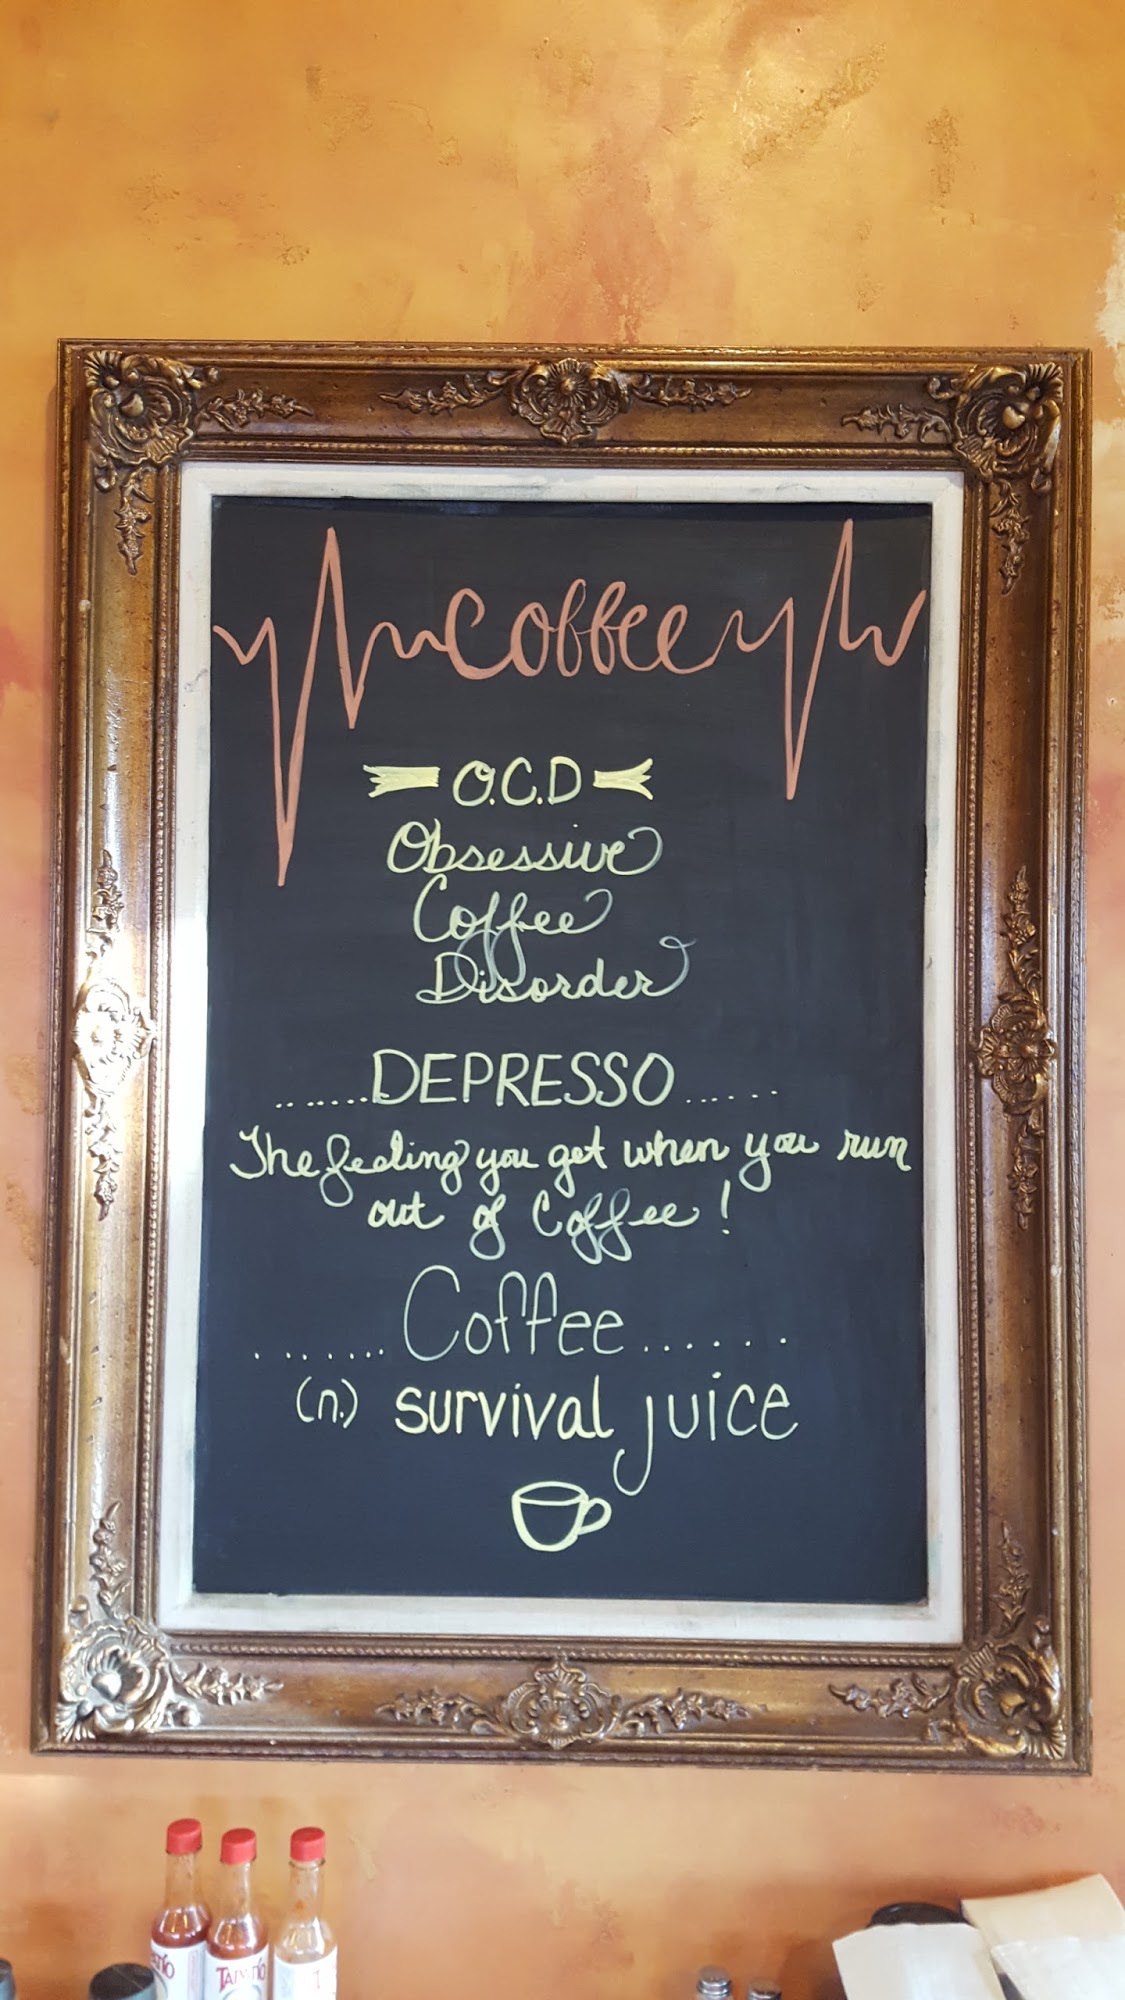 coffee
O.C.D
Obsessive
Coffee
Disorder
.......DEPRESSO......
The feeling you get when you run
out of Coffee!
.......Coffee......
(n.) survival juice
TAPATÍO